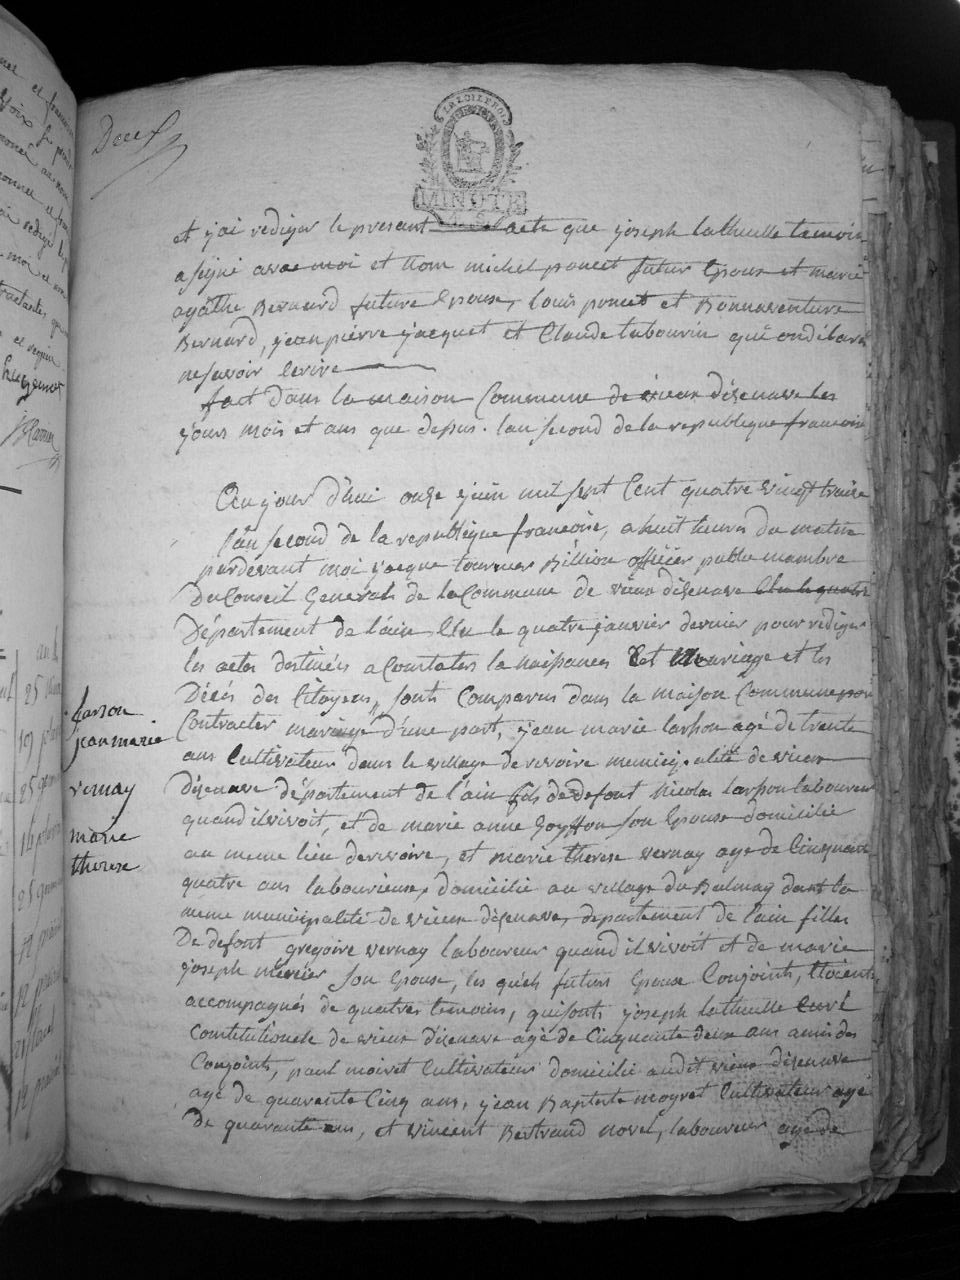 Deux
LA LOI LE ROI
MINUTE
4. S.
et j'ai rediger le present acte que joseph lathuille temoin
a signé avec moi et nom michel poncet futur Epoux et marie
agathe Bernard future Epouse, louis poncet et Bonnaventure
Bernard, jean pierre jacquet et Claude tabourin qui ond ébaré
ne savoir Ecrire
fait dans la maison Commune de vieux disenave les
jours mois et ans que depus. lan second de la republique francoise
Ceu jour d'hui onze juin mil sept Cent quatre vingt traize
lan second de la republique francoise, a huit heures du matin
pardevant moi jacque tournier Billion officier public mambre
Du Conseil General de la Commune de vieux disenave
Département de l'ain Elu le quatre janvier dernier pour rediger
les actes destinées a Constater la naissances et Mariage et les
Décés des Citoyens, sonts Comparus dans la maison Commune por
Contracter mariage d'une part, jean marie larson agé de trente
ans Cultivateur dans le village de rivoire municipalité de vieux
disenave département de l'ain fils de defont Nicolas larson laboureur
quand il vivoit, et de marie anne goyffon son Epouse domiciliée
au meme lieu de rivoire, et marie therese vernay age de Cinquant
quatre ans labourieuse, domicilié au village du Balmay dant la
meme municipalité de vieux disenave, departement de l'ain fille
De defont gregoire vernay laboureur quand il vivoit et de marie
joseph mercier son Epouse, les quels futurs Epoux Conjoints, Etoient
accompagnés de quatres temoins, qui sonts joseph lathuille Curé
Constitutionele de vieux disenave agé de Cinquante deux ans amis des
Conjoints, paul moiret Cultivateur domicilié audit vieux disenave
age de quarante Cinq ans, jean Baptiste moyret Cultivateur agé
De quarante ans, et vincent Bertrand novel, laboureur agé de
larson
jean marie
vernay
marie
therese